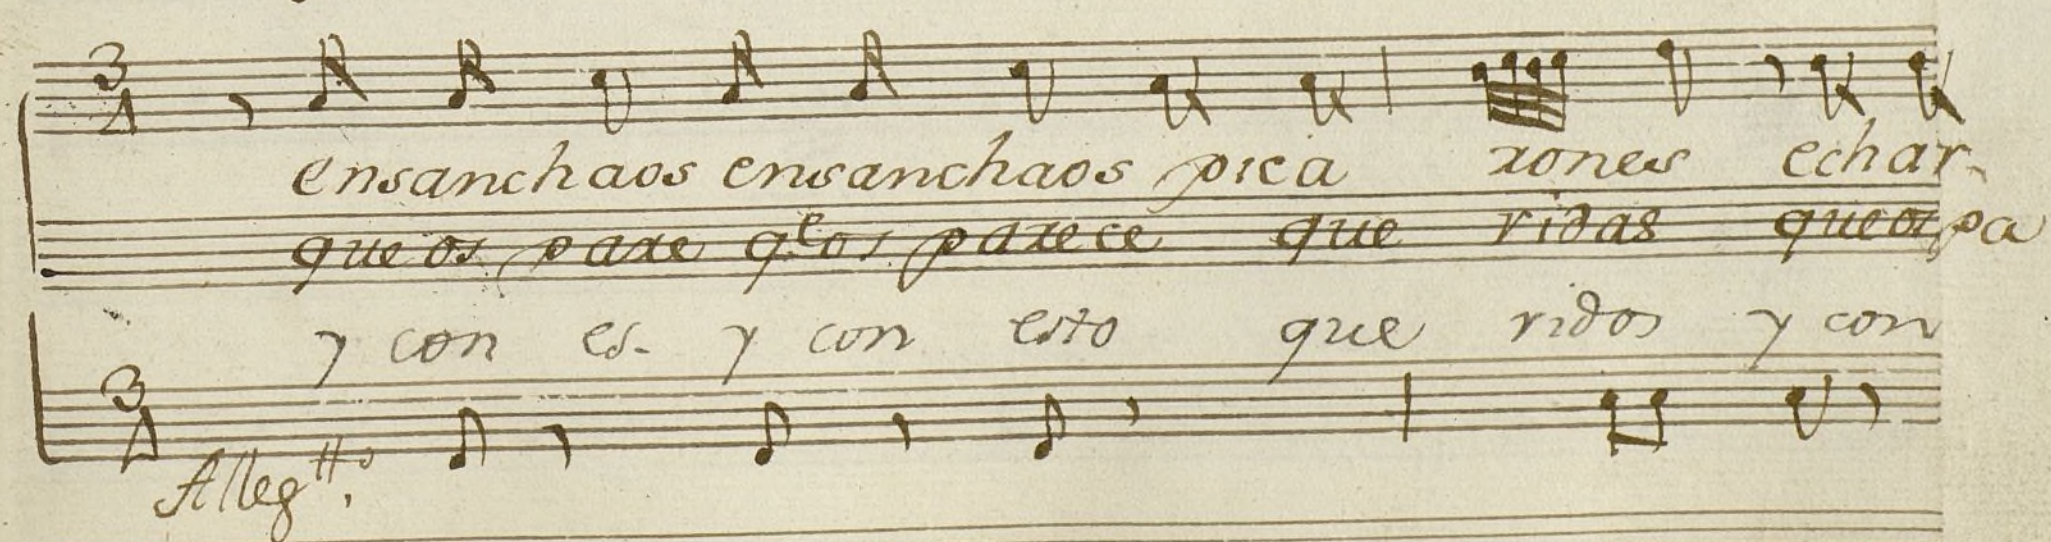 3
4
ensanchaos ensanchaos pica rones echar-
que os pare q.e os parece que ridas que os pa
y con es- y con esto que ridos y con
3
4
Alleg.tto